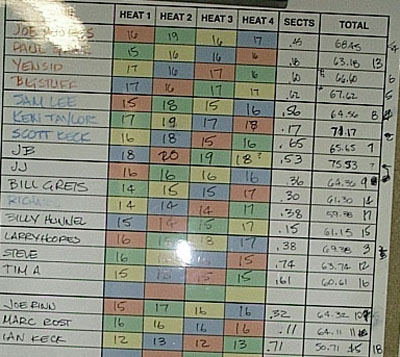 HEAT 1 HEAT 2 HEAT 3 HEAT 4 SECTS TOTAL
JOE 16 19 16 17 .45 68.45
PAUL 15 16 16 16 .18 63.18 13
YENSID 17 16 17 16 .60 66.60
BIGSTUFF 17 16 17 17 .62 67.62
SAM LEE 15 18 15 16 .56 64.56 8
KEN TAYLOR 17 19 17 18 .17 71.17
SCOTT KECK 16 18 15 16 .65 65.65 7
JB 18 20 19 18 .53 75.53
JJ 16 16 16 16 .36 64.36 9
BILL GREIS 14 15 15 17 .30 61.30 14
14 14 14 17 .38 59.38 17
BILLY HUNNEL 15 14 15 17 .15 61.15 15
LARRY HOOPES 16 18 17 .38 69.38 3
STEVE 16 15 .74 63.74 12
TIM A 15 16 15 15 .61 60.61 16
JOE RINN 15 17 16 16 .32 64.32
MARC ROST 16 16 16 16 .11 64.11 11
IAN KECK 12 13 12 13 .71 50.71 18